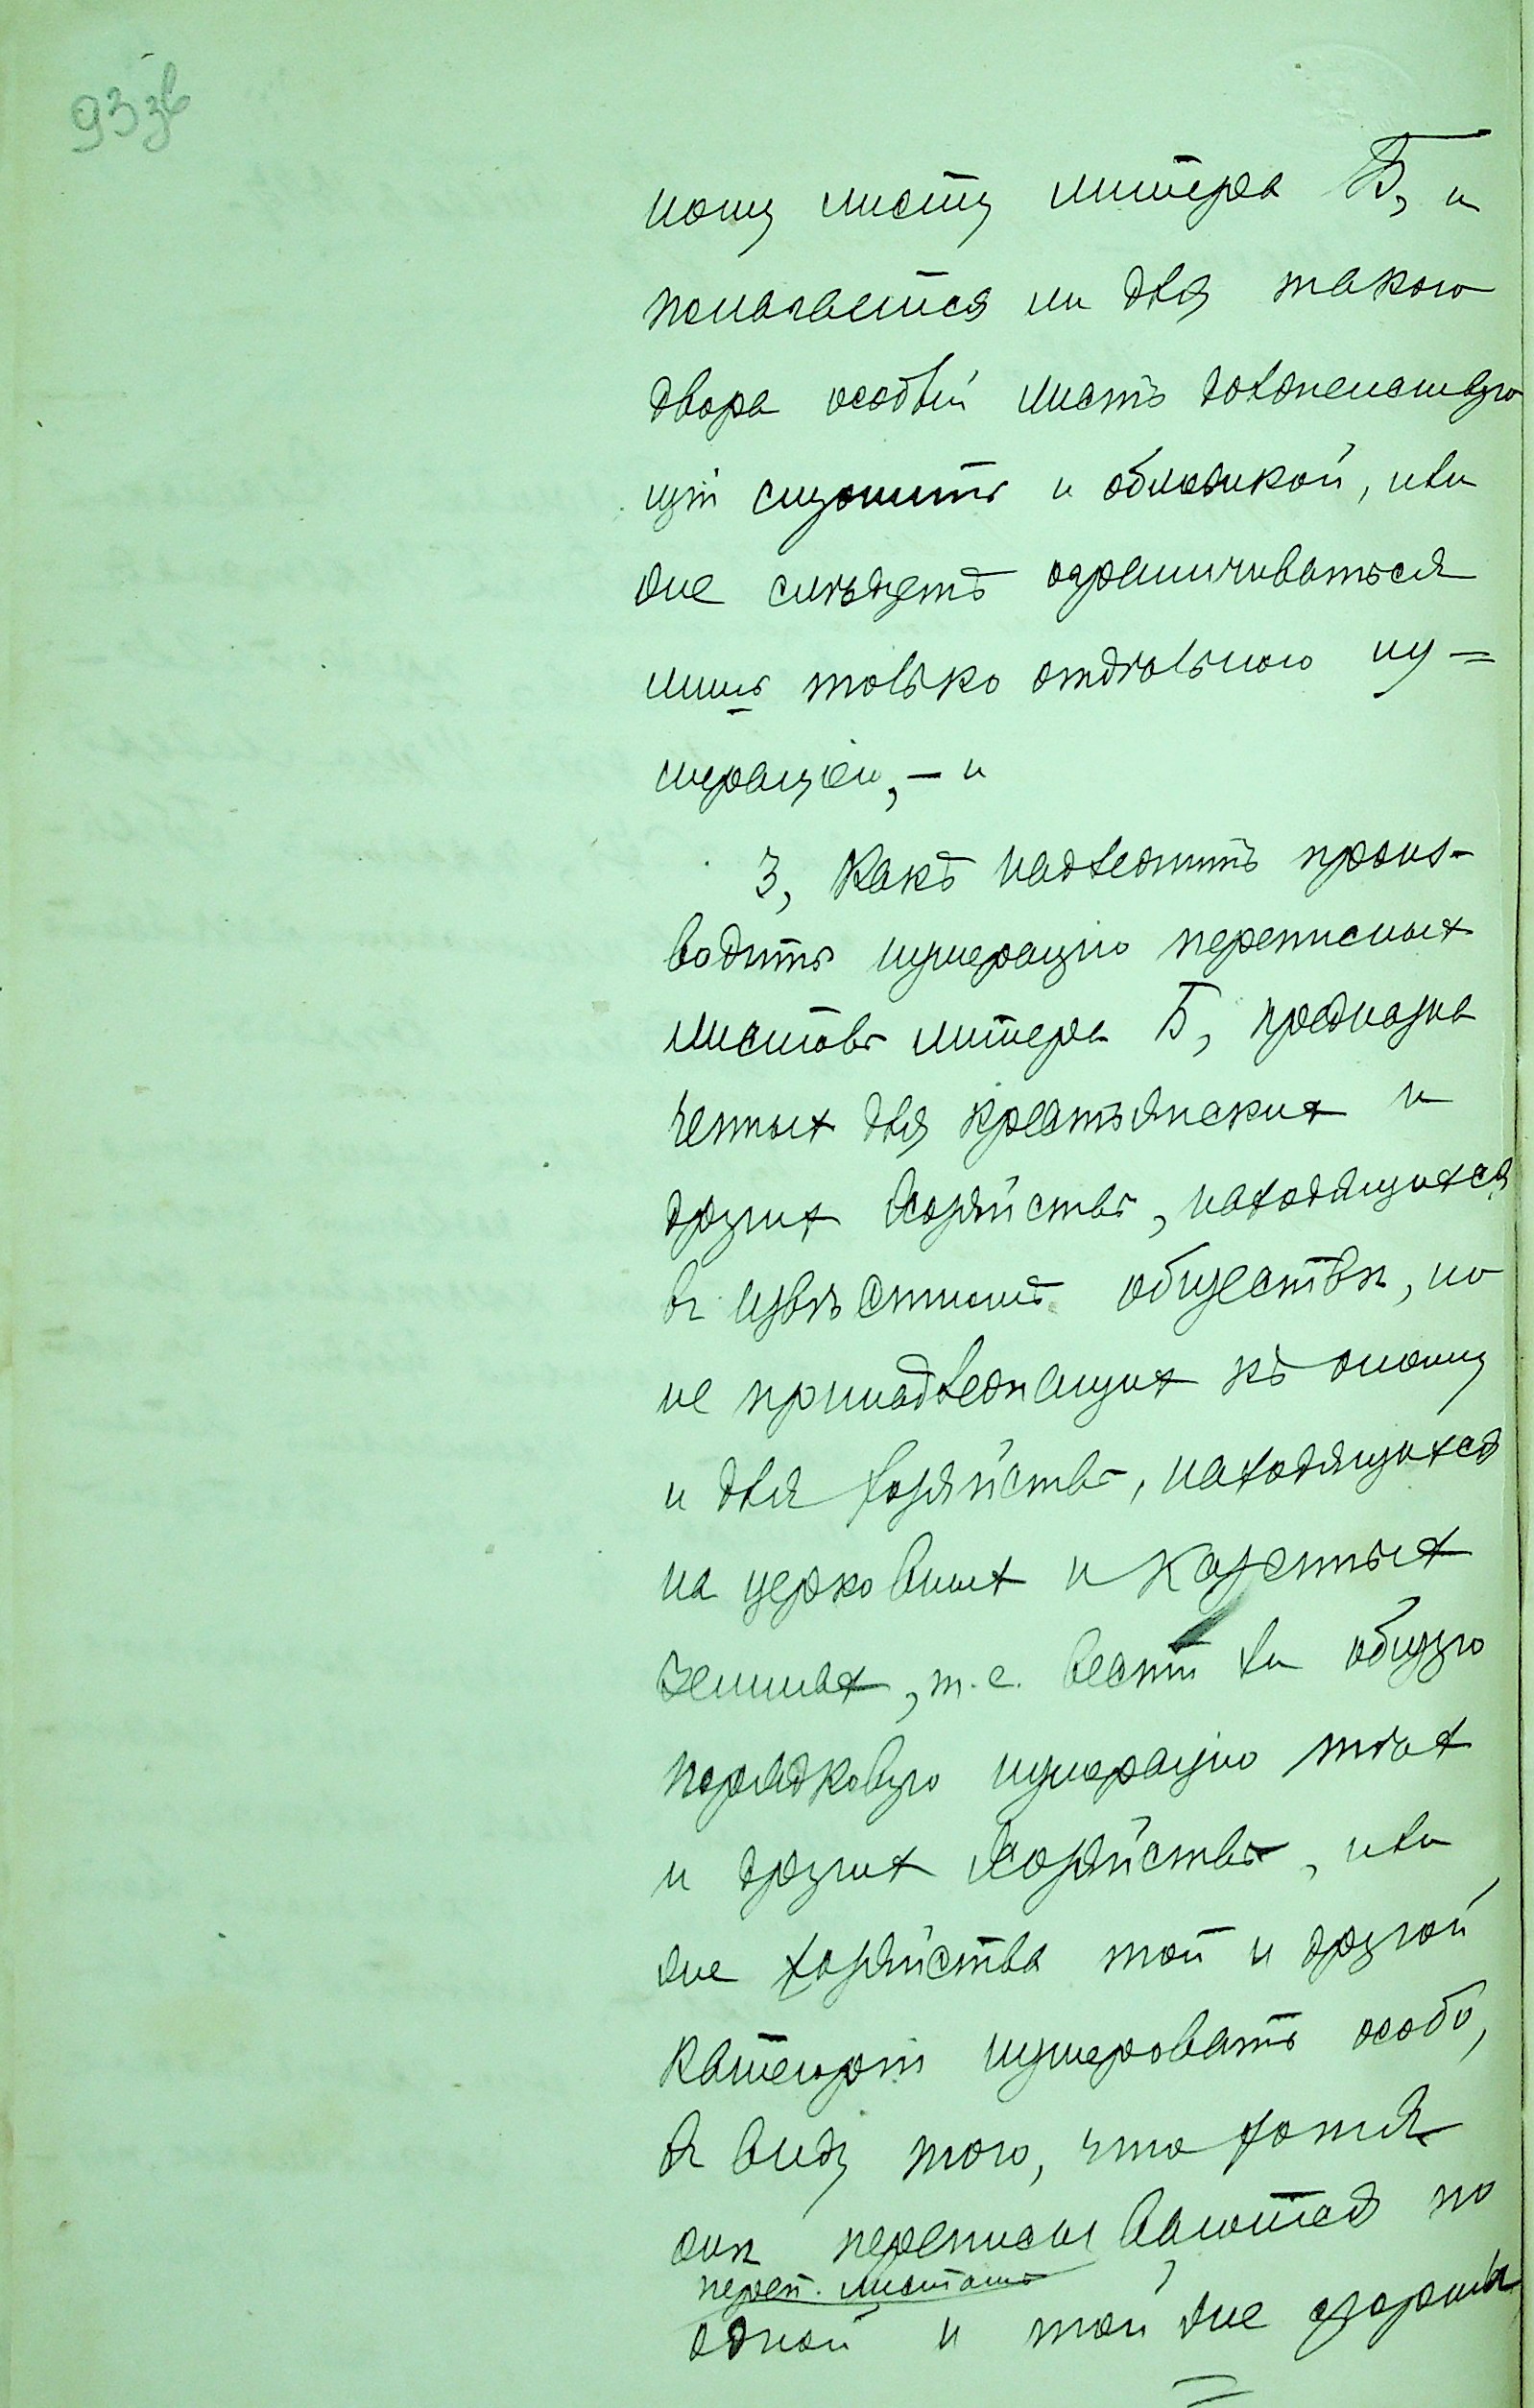 93 зв
ному листу литера Б, и
полагается ли для такого
двора особый листъ долженствую
щій служить и обложкой, или
же слѣдуетъ ограничиваться
лишь только отдѣльною ну=
мераціею, – и
3, Какъ надлежитъ произ-
водить нумерацію переписных
листовъ литера Б, предназна
ченных для крестьянских и
других хозяйствъ, находящихся
въ извѣстномъ обществѣ, но
не принадлежащих къ оному
и для хозяйствъ, находящихся
на церковных и казенных
землях, т.е. вести ли общую
порядковую нумерацію тѣх
и других хозяйствъ, или
же хозяйства той и другой
категоріи нумеровать особо,
въ виду того, что хотя
они переписываются по
переп. листамъ
одной и той же формы